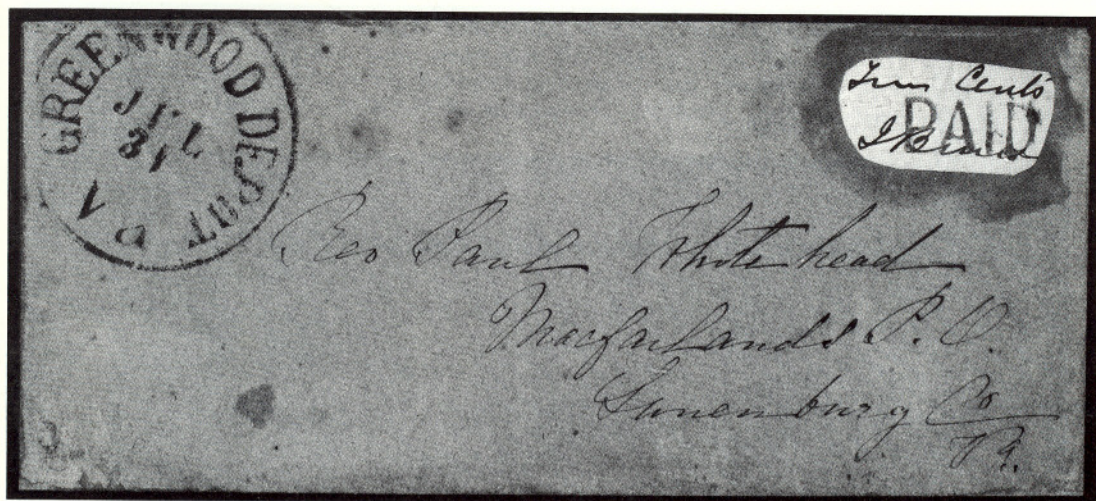 GREENWOOD DEPOT VA
JUL
31
Ten Cents
PAID
J Bruns
Rev Paul Whitehead
Macfarlands P.O.
Lunenburg Co
Va.